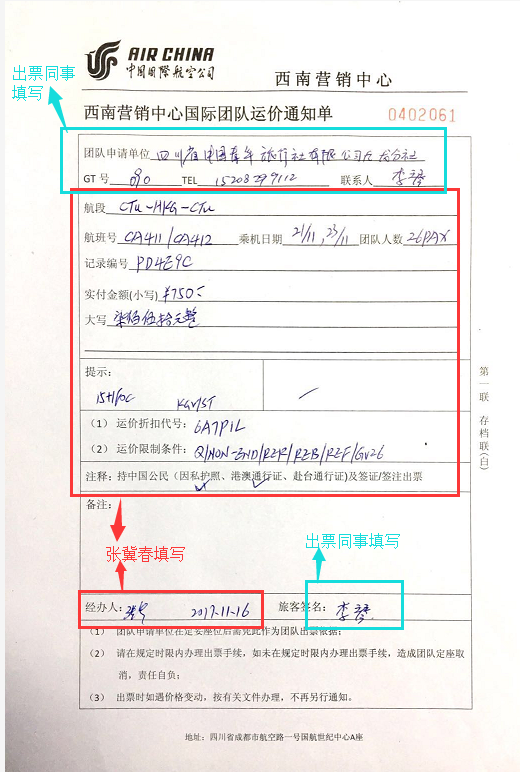 AIR CHINA
中国国际航空公司
西南营销中心
出票同事
填写
西南营销中心国际团队运价通知单
0402061
团队申请单位 四川省中国青年旅行社有限公司
GT 号 090 TEL 15208299112 联系人 李
航段 CTU-HKG-CTU
航班号 CA411/CA412 乘机日期 21/11, 23/11 团队人数 26PAX
记录编号 PD4E9C
实付金额(小写) ¥750
大写 柒佰伍拾元整
提示:
15+1/FOC
(1) 运价折扣代号: 6A7P1L
(2) 运价限制条件: Q/NON-END/RER/REB/REF/GV26
注释: 持中国公民(因私护照、港澳通行证、赴台通行证)及签证/签注出票
第一联 存档联(白)
备注:
张冀春填写
出票同事填写
经办人: 2017-11-16 旅客签名: 李
(1) 团队申请单位在定妥座位后需凭此作为团队出票依据;
(2) 请在规定时限内办理出票手续,如未在规定时限内办理出票手续,造成团队定座取
消,责任自负;
(3) 出票时如遇价格变动,按有关文件办理,不再另行通知。
地址: 四川省成都市航空路一号国航世纪中心A座